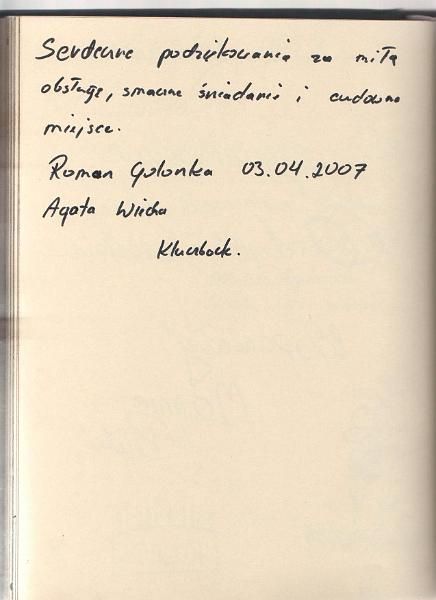 Serdeczne podziękowania za miłą
obsługę, smaczne śniadanie i cudowne
miejsce.
Roman Golonka 03.04.2007
Agata Wiecha
Kluczbork.